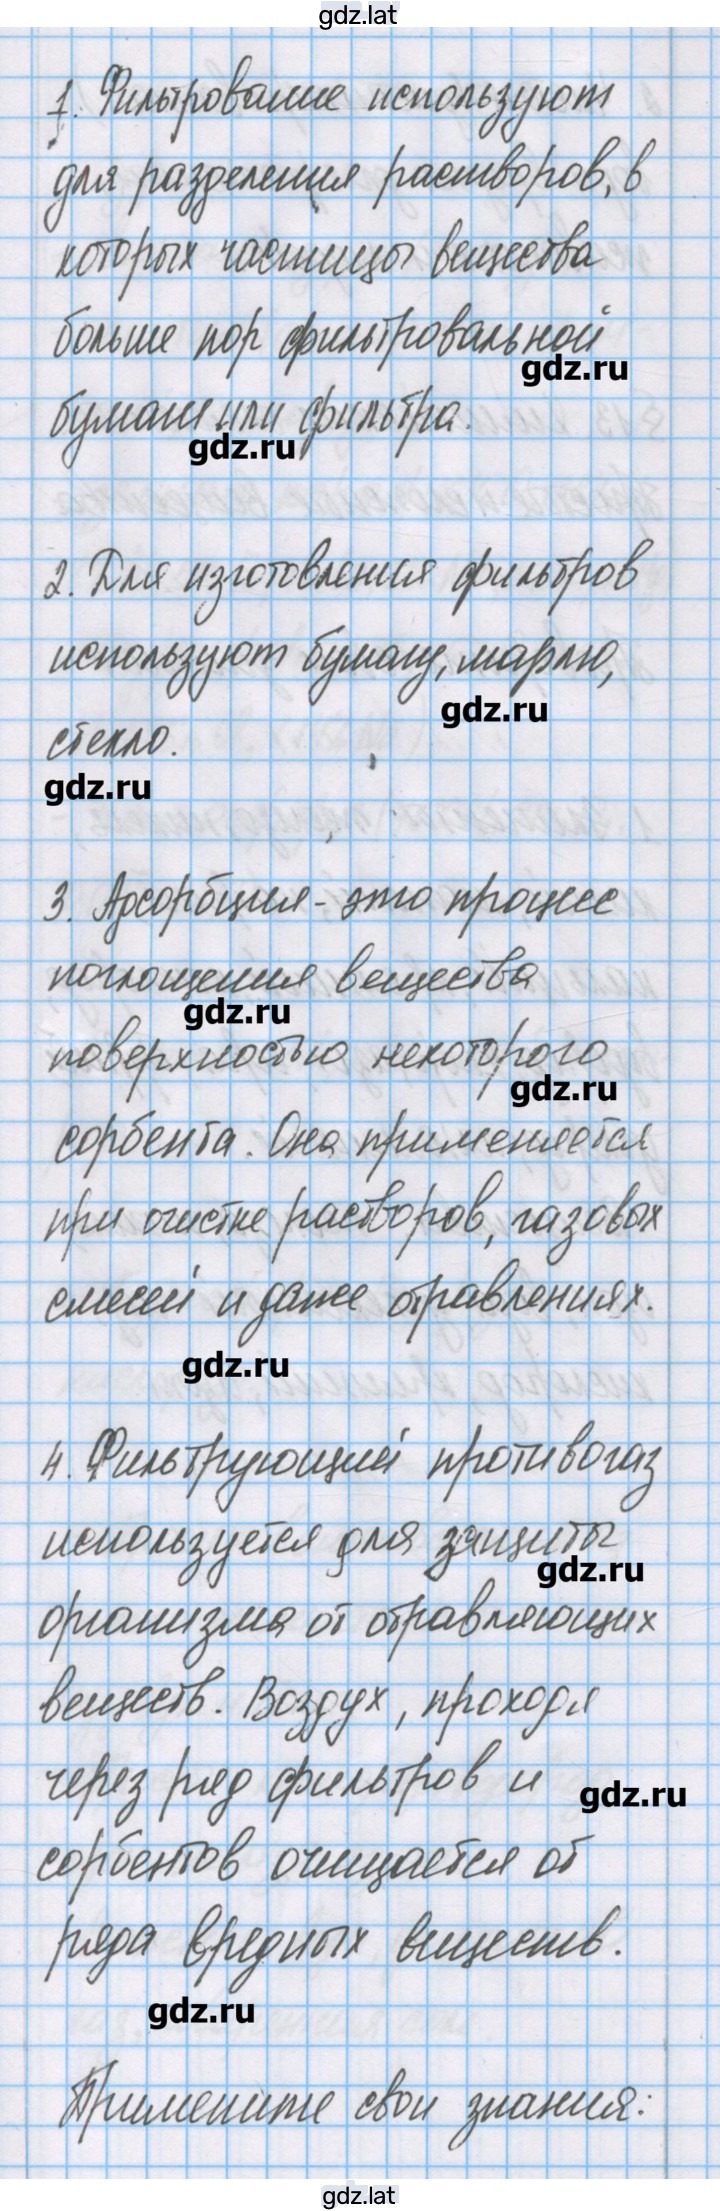 gdz.lat
1. Фильтрование используют
для разделения растворов, в
которых частицы вещества
больше пор фильтровальной
gdz.ru
бумаги или фильтра.
gdz.ru
2. Для изготовления фильтров
используют бумагу, марлю,
gdz.ru
стекло.
gdz.ru
3. Адсорбция - это процесс
поглощения вещества
gdz.ru
поверхностью некоторого
gdz.ru
сорбента. Она применяется
при очистке растворов, газовых
смесей и даже отравлениях.
gdz.ru
4. Фильтрующий противогаз
используется для защиты
gdz.ru
организма от отравляющих
веществ. Воздух, проходя
через ряд фильтров и
gdz.ru
сорбентов очищается от
ряда вредных веществ.
gdz.ru
Примените свои знания:
gdz.lat